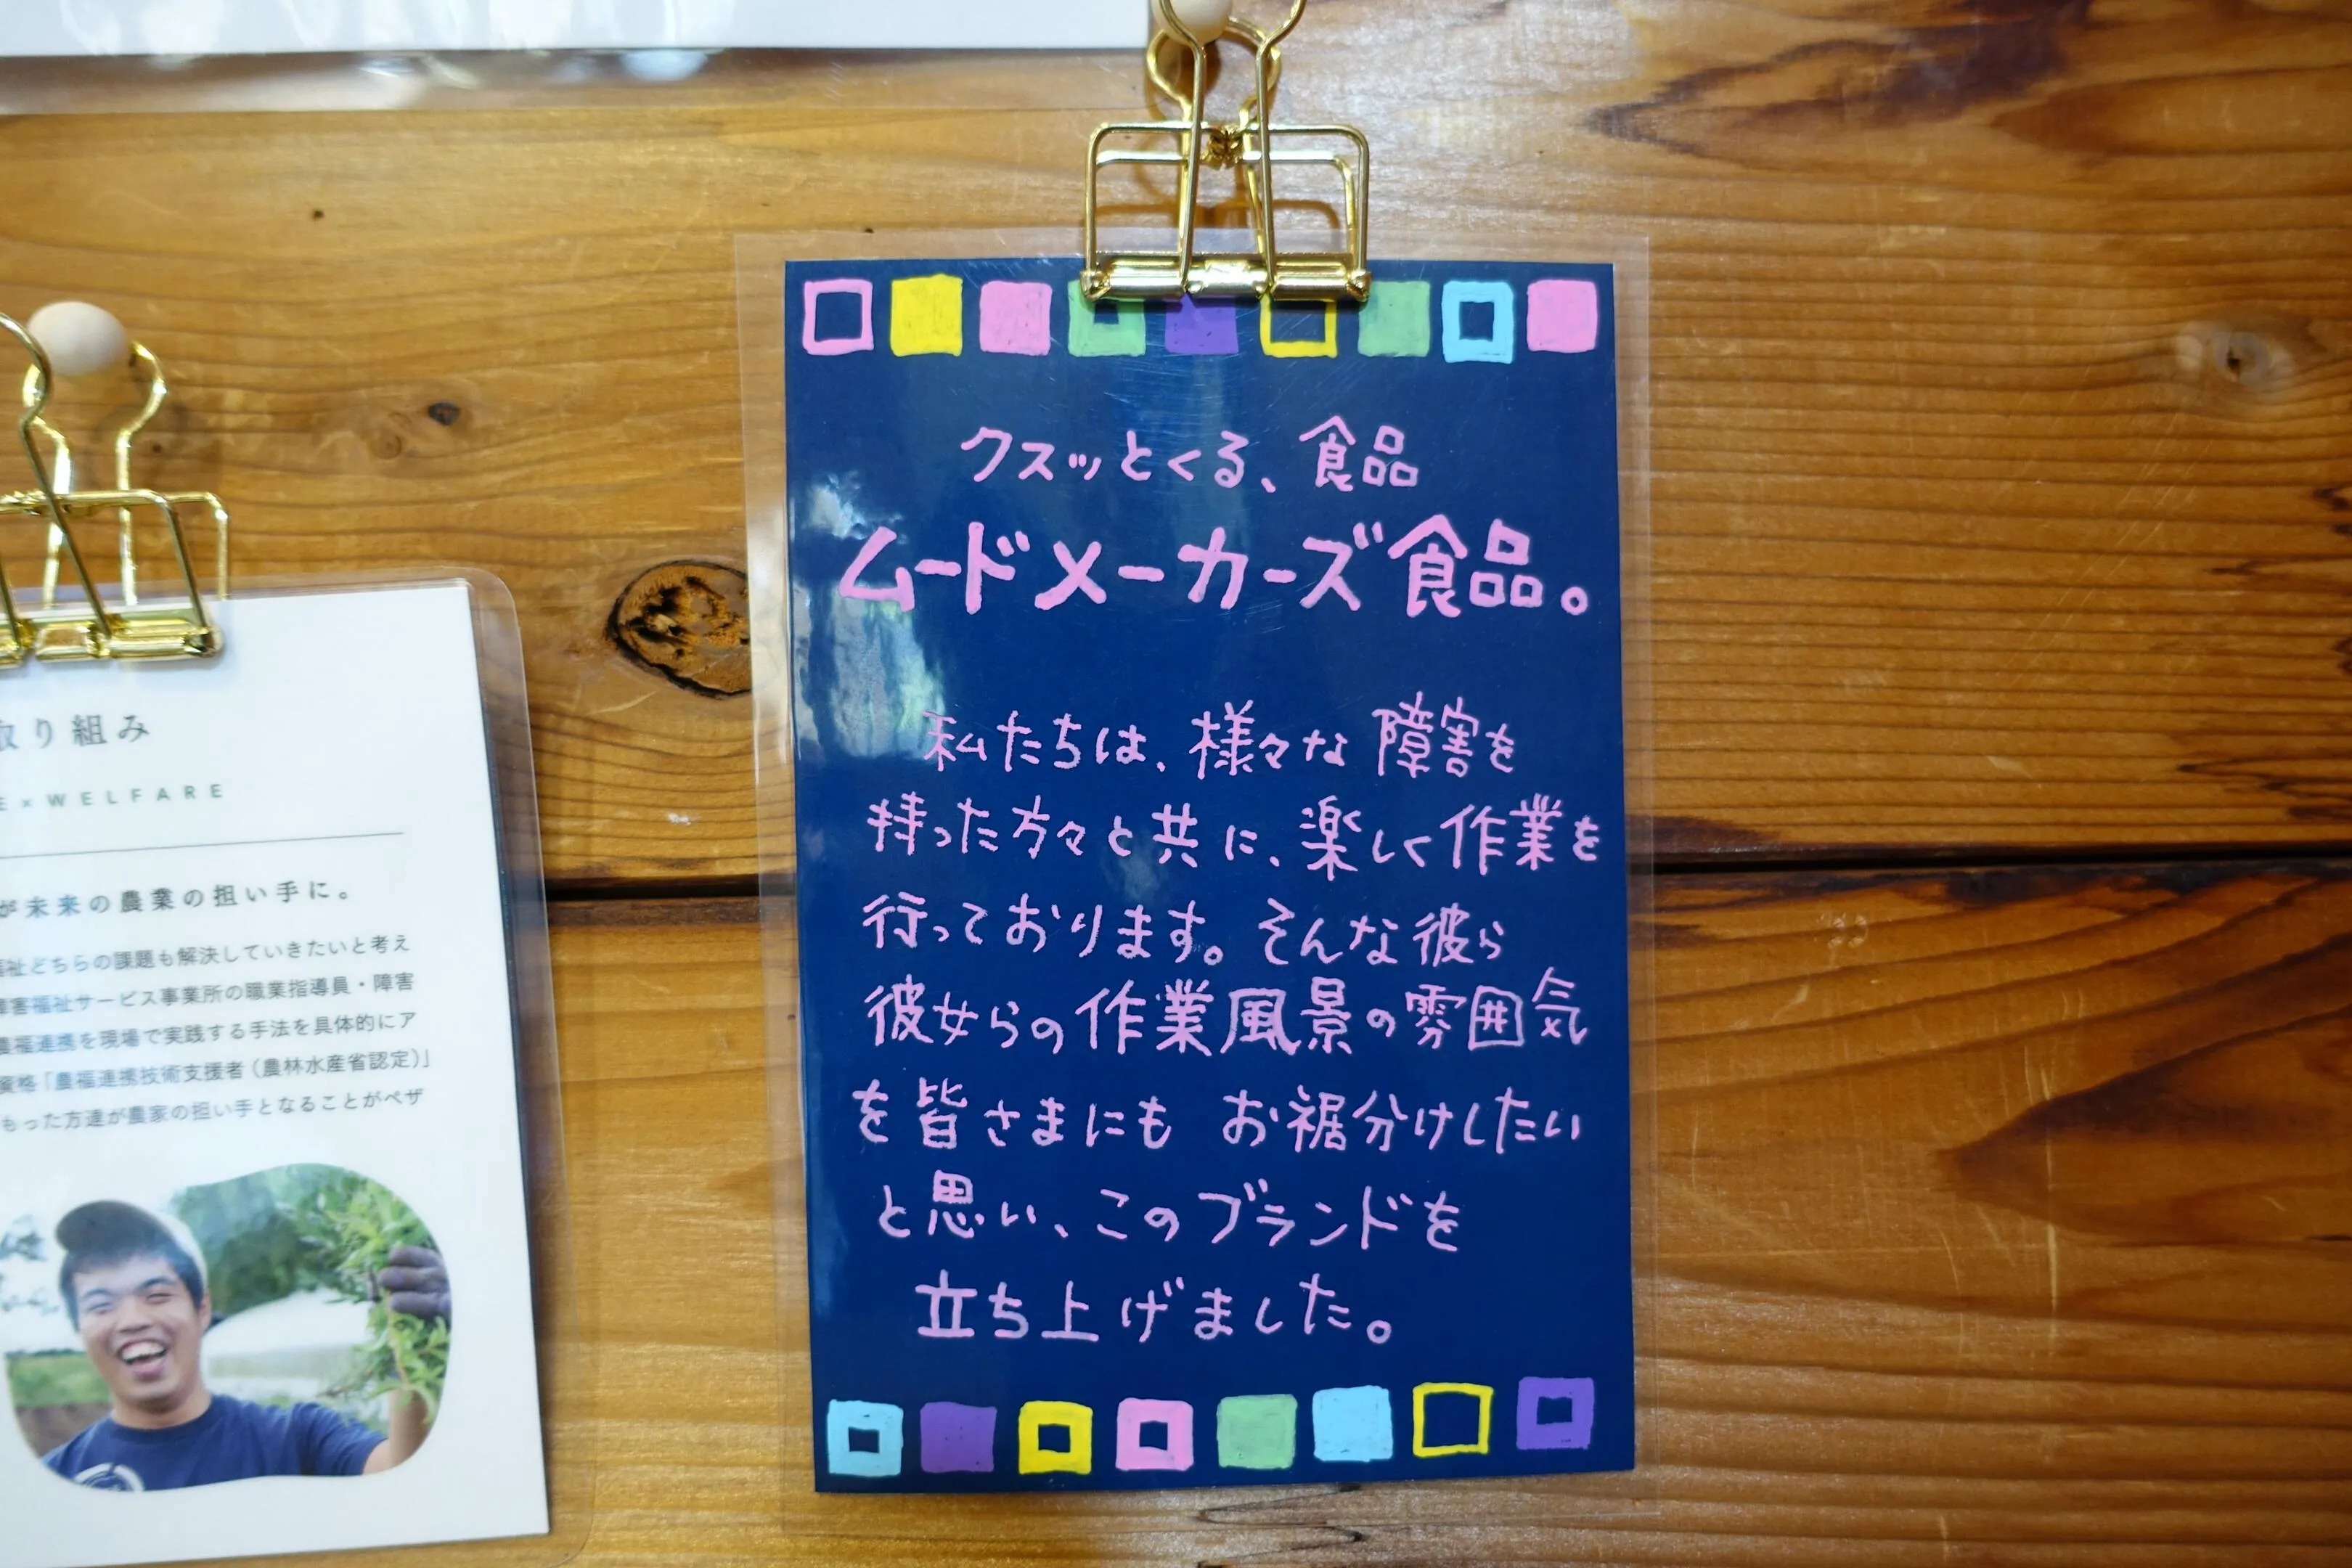 取り組み
E×WELFARE
が未来の農業の担い手に。
福祉どちらの課題も解決していきたいと考え
障害福祉サービス事業所の職業指導員・障害
農福連携を現場で実践する手法を具体的にア
資格「農福連携技術支援者（農林水産省認定）」
もった方達が農家の担い手となることがペザ
クスッとくる、食品
ムードメーカーズ食品。
私たちは、様々な障害を
持った方々と共に、楽しく作業を
行っております。そんな彼ら
彼女らの作業風景の雰囲気
を皆さまにも お裾分けしたい
と思い、このブランドを
立ち上げました。